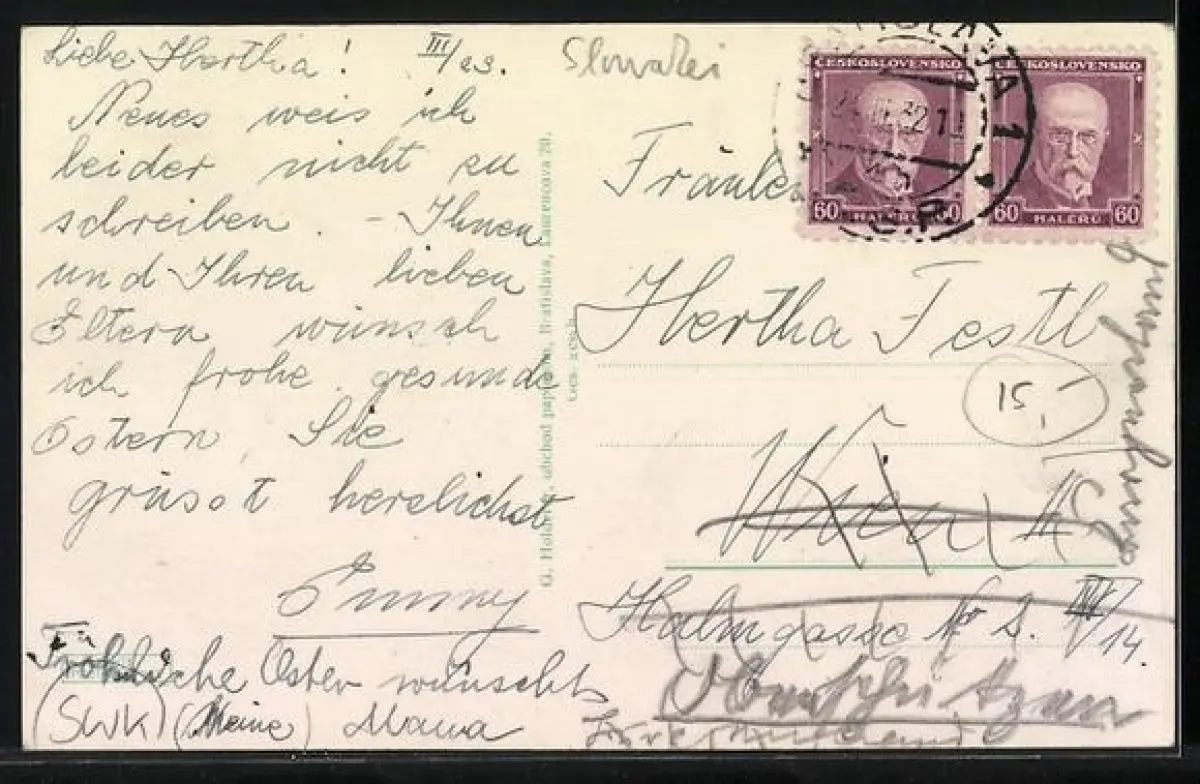 Liebe Hertha! III/23.
Neues weis ich
leider nicht zu
schreiben. - Ihnen
und Ihren lieben
Eltern wünsch
ich frohe gesunde
Ostern, Sie
grüsst herzlichst
Emmy
Fröhliche Oster wünscht
(SWK) (Meine) Mama
G. obchod Bratislava, 20.
Slowakei
ČESKOSLOVENSKO
60 HALÉŘŮ 60
ČESKOSLOVENSKO
60 HALÉŘŮ 60
1
Hertha Testl
15,-
Wien
Halmgasse Nr 3. III/14.